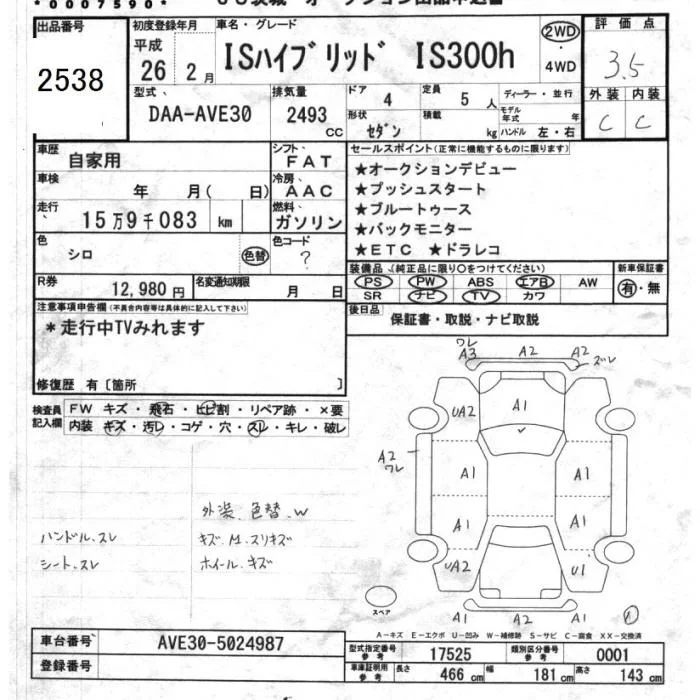 *0007590*
出品番号
2538
初度登録年月
平成
26 年 2 月
車名・グレード
ISハイブリッド IS300h
2WD
・
4WD
評価点
3.5
外装 内装
C C
型式
DAA-AVE30
排気量
2493
CC
ドア
4
定員
5 人
形状
セダン
積載
kg
ディーラー・並行
モデル
年式 年
ハンドル 左・右
車歴
自家用
シフト
FAT
車検
年 月( 日)
冷房
AAC
走行
15万9千083 km
燃料
ガソリン
色
シロ
色替
色コード
?
R券
12,980 円
名変通知期限
月 日
セールスポイント(正常に機能するものに限ります)
★オークションデビュー
★プッシュスタート
★ブルートゥース
★バックモニター
★ETC ★ドラレコ
装備品(純正品に限り○をつけてください)
PS PW ABS エアB AW
SR ナビ TV カワ
新車保証書
有・無
後日品
保証書・取説・ナビ取説
注意事項申告欄(不具合内容等は具体的に記入して下さい)
*走行中TVみれます
修復歴 有〔箇所 〕
検査員
記入欄
FW キズ・飛石・ヒビ割・リペア跡・×要
内装 キズ・汚レ・コゲ・穴・スレ・キレ・破レ
外装、色替、W
ハンドル、スレ
キズ、M、スリキズ
シート、スレ
ホイール、キズ
ワレ
A3 A2 A2
ズレ
UA2 A1
A2
ワレ
A1 A1
A1 A1
UA2 U1
A1 A2 A1
スペア
A-キズ E-エクボ U-凹み W-補修跡 S-サビ C-腐食 XX-交換済
車台番号
AVE30-5024987
登録番号
型式指定番号
参考
17525
類別区分番号
参考
0001
車庫証明用
参考
長さ
466 cm
幅
181 cm
高さ
143 cm